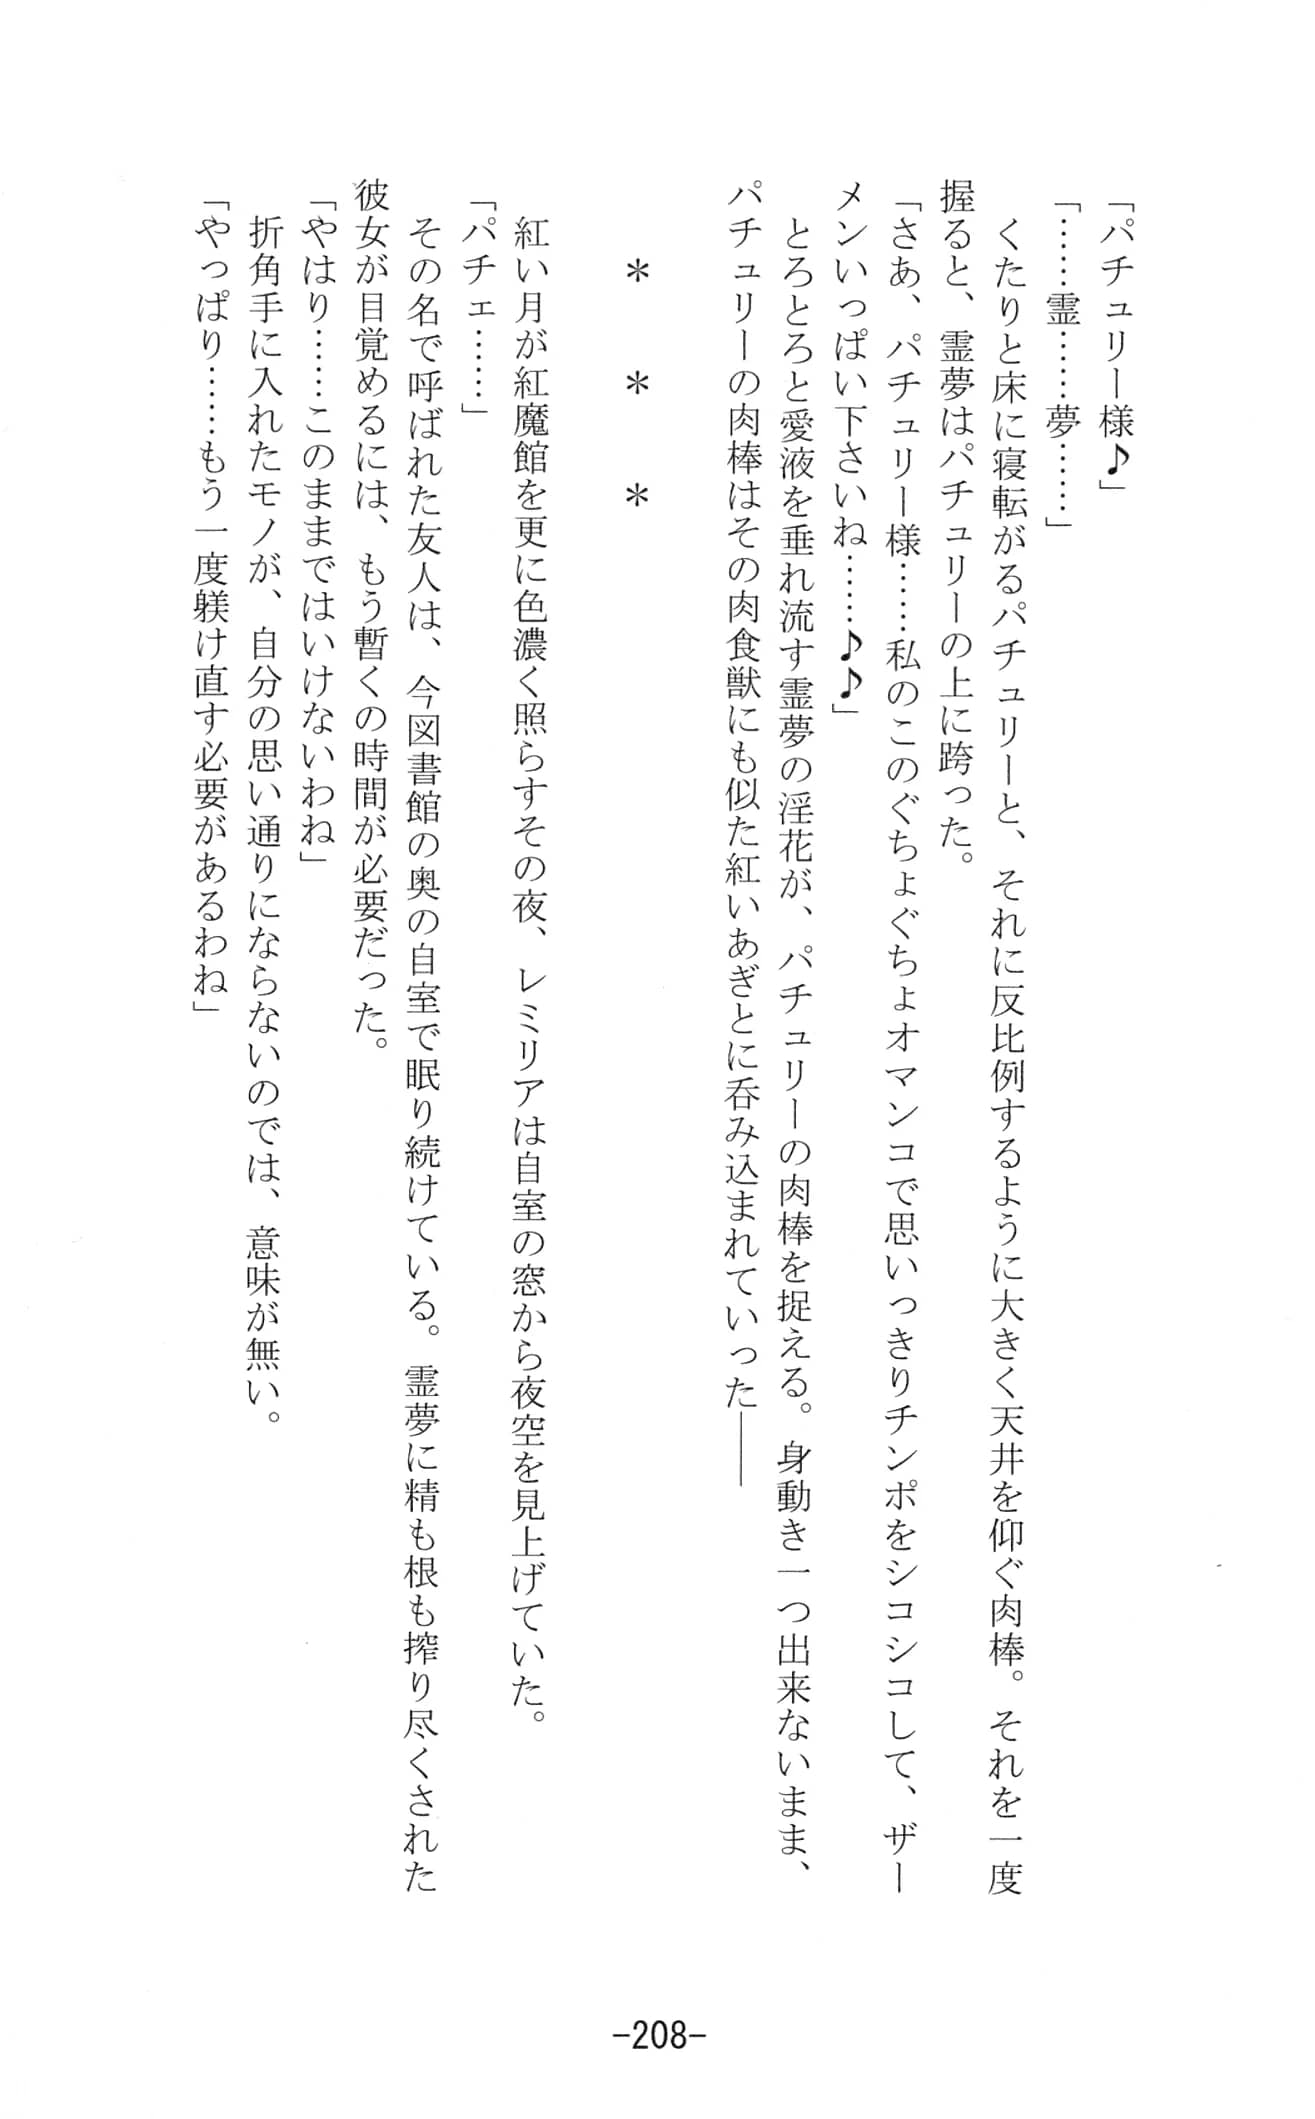 「パチュリー様♪」
「……霊……夢……」
　くたりと床に寝転がるパチュリーと、それに反比例するように大きく天井を仰ぐ肉棒。それを一度
握ると、霊夢はパチュリーの上に跨った。
「さあ、パチュリー様……私のこのぐちょぐちょオマンコで思いっきりチンポをシコシコして、ザー
メンいっぱい下さいね……♪♪」
　とろとろと愛液を垂れ流す霊夢の淫花が、パチュリーの肉棒を捉える。身動き一つ出来ないまま、
パチュリーの肉棒はその肉食獣にも似た紅いあぎとに呑み込まれていった――
＊　＊　＊
　紅い月が紅魔館を更に色濃く照らすその夜、レミリアは自室の窓から夜空を見上げていた。
「パチェ……」
　その名で呼ばれた友人は、今図書館の奥の自室で眠り続けている。霊夢に精も根も搾り尽くされた
彼女が目覚めるには、もう暫くの時間が必要だった。
「やはり……このままではいけないわね」
　折角手に入れたモノが、自分の思い通りにならないのでは、意味が無い。
「やっぱり……もう一度躾け直す必要があるわね」
-208-